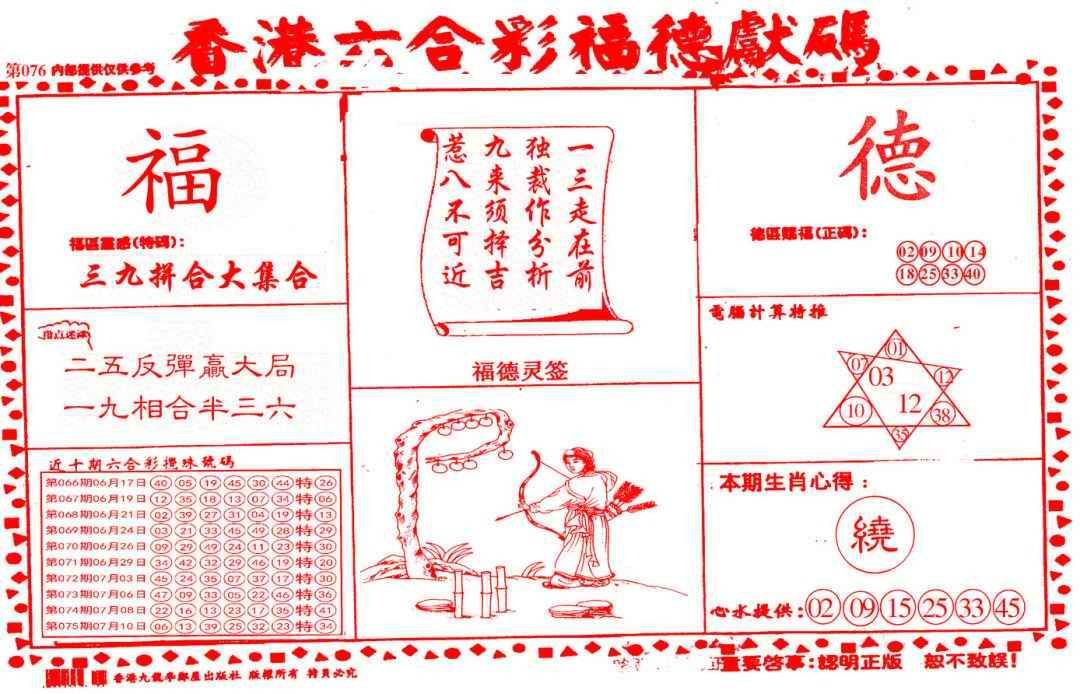 香港六合彩福德獻碼
第076 內部提供仅供参考
福
福區靈感(特碼):
三九拼合大集合
二五反彈贏大局
一九相合半三六
近十期六合彩攪珠號碼
第066期06月17日 40 05 19 45 30 44 特 26
第067期06月19日 12 35 18 13 07 34 特 06
第068期06月21日 02 39 27 31 04 19 特 13
第069期06月24日 03 21 33 45 49 28 特 29
第070期06月26日 09 29 49 24 11 23 特 30
第071期06月29日 34 42 32 29 46 19 特 20
第072期07月03日 45 24 35 07 37 17 特 30
第073期07月06日 47 09 33 05 22 46 特 36
第074期07月08日 22 16 13 23 17 35 特 41
第075期07月10日 06 13 39 25 32 23 特 34
一三走在前
独裁作分析
九来须择吉
惹八不可近
福德灵签
德
德區賜福(正碼):
02 09 10 14
18 25 33 40
電腦計算特推
01
07 03 12
10 12 38
35
本期生肖心得:
繞
心水提供: 02 09 15 25 33 45
香港九龍 出版社 版權所有 特頁必究
重要啓事:認明正版 恕不致誤!